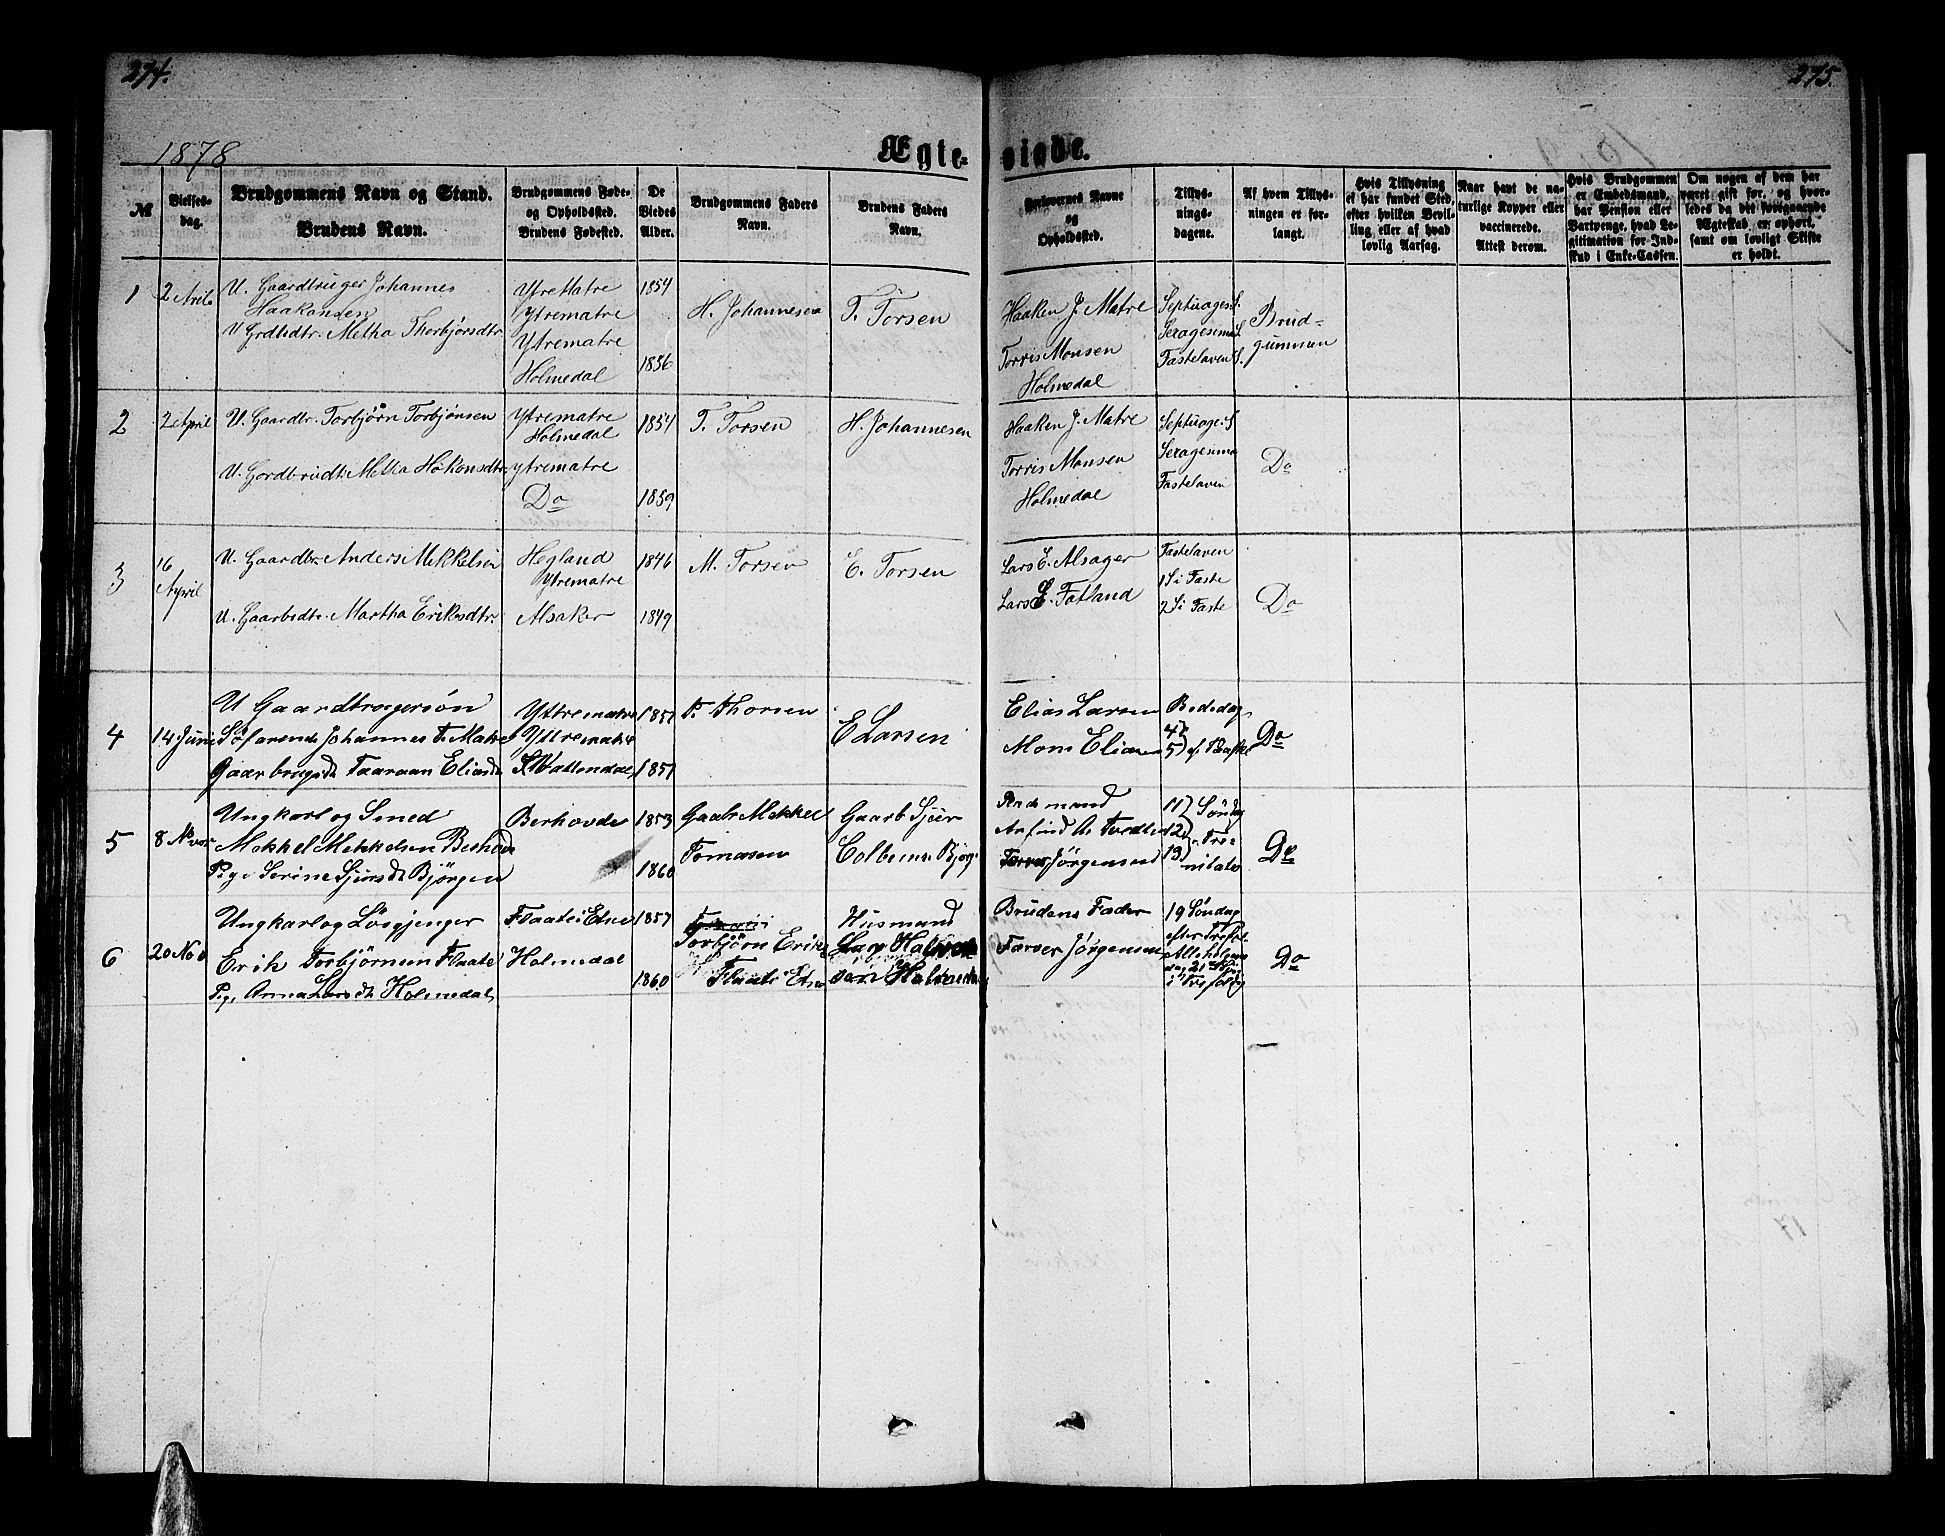 274.
275.
1878
Ægte-
viede.
№
Vielses-
dag.
Brudgommens Navn og Stand.
Brudens Navn.
Brudgommens Føde-
og Opholdssted.
Brudens Fødested.
De
Viedes
Alder.
Brudgommens Faders
Navn.
Brudens Faders
Navn.
Forlovernes Navne
og
Opholdssted.
Tillys-
nings-
dagene.
Af hvem Tillys-
ningen er for-
langt.
Hvis Tillysning
ei har fundet Sted,
efter hvilken Bevil-
ling, eller af hvad
lovlig Aarsag.
Naar havt de na-
turlige Kopper eller
vaccinerede.
Attest derom.
Hvis Brudgommen
er Embedsmand,
har Pension eller
Vartpenge, hvad Le-
gitimation for Ind-
skud i Enke-Cassen.
Om nogen af dem har
været gift før, og hvor-
ledes da det foregaaende
Ægteskab er ophørt,
samt om lovligt Skifte
er holdt.
1
2 April
U. Gaardbruger Johannes
Haakonsen
U Grdbdtr. Metha Thorbjørsdtr
Ytre Matre
Ytrematre
Ytrematre
Holmedal
1854
1856
H. Johannesen
T. Torsen
Haaken J. Matre
Torris Monsen
Holmedal
Septuages. S.
Sexagesima S.
Fastelaven S.
Brud-
gummen
2
2 April
U. Gaardbr. Torbjørn Torbjønsen
U. Gordbrudt. Metta Hakonsdtr
Ytrematre
Holmedal
ytrematre
Do
1854
1859
T. Torsen
H. Johannesen
Haaken J. Matre
Torris Monsen
Holmedal
Septuage. S
Sexagesima
Fastelaven
Do
3
16
April
U. Gaardbr. Anders Mekkelsen
U. Gaarbsdtr. Martha Eriksdtr.
Hegland
Ytrematre
Alsaker
1846
1849
M. Torsen
E. Torsen
Lars E. Alsager
Lars E. Fatland
Fastelaven
1 S i Faste
2 S i Faste
Do
4
14 Juni
U Gaardbrugersøn
Søfarende Johannes T. Matre
Gaarbrugsdt Taaraan Eliasdt
Yttrematre
Yttrematre
Vattendal
1857
1857
T. Thorsen
E Larsen
Elias Larsen
Mons Eliasen
Bededag
4
5 ef. Paaske
Do
5
8 Nov
Ungkarl og Smed
Mekkel Mekkelsen Berhovde
Pige Serine Sjursdt Bjørgen
Berhovde
1853
1860
Gaarb Mekkel
Tomasen
Gaarb Sjur
Colbens. Bjørg
Arfind A.
Jørgensen
11 Søndag
12
13 Tri-
nitatis
Do
6
20 Nov
Ungkarl og Løsgjenger
Erik Torbjørnsen Flaate
Pige Anna Larsdt Holmedal
Flaate i Etne
Holmedal
1857
1860
Torbjørn Eriks
Flaate i Etne
Husmand
Lars
sen Holmedal
Brudens Fader
Farver Jørgensen
19 Søndag
efter Trefol.
Allehelgens
dag 21 Søn
i Trefoldg
Do
17